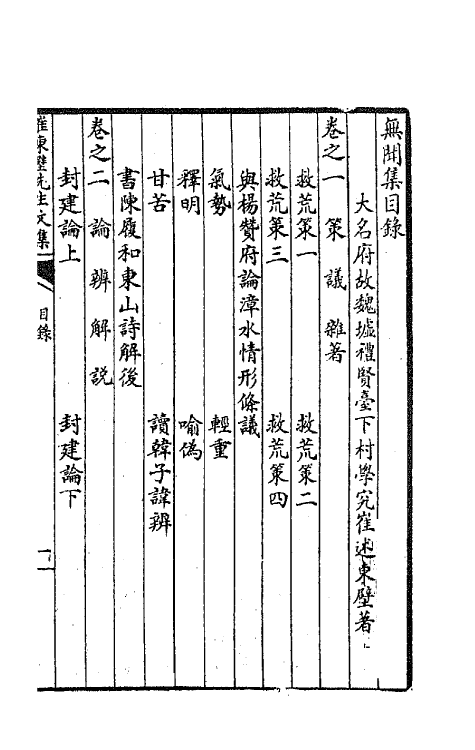 無聞集目錄
大名府故魏墟禮賢臺下村學究崔述東壁著
卷之一　策　議　雜著
救荒策一　救荒策二
救荒策三　救荒策四
與楊贊府論漳水情形條議
氣勢　輕重
釋明　喻偽
甘苦　讀韓子諱辨
書陳履和東山詩解後
卷之二　論　辨　解　説
封建論上　封建論下
崔東壁先生文集　目錄　一